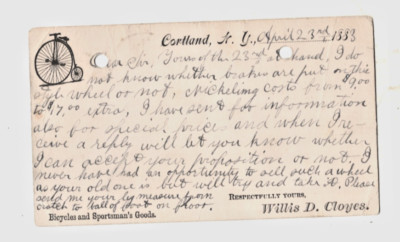 Cortland, N. Y., April 23rd 1883
Dear Sir, Yours of the 23rd at hand, I do
not know whether brakes are put on this
style wheel or not, Nickeling costs from $9.00
to $17.00 extra, I have sent for information
also for special price and when I re-
ceive a reply will let you know whether
I can accept your proposition or not. I
never have had an opportunity to sell such a wheel
as your old one is but will try and take it, Please
send me your leg measure from
crotch to ball of foot on floor.
RESPECTFULLY YOURS,
Willis D. Cloyes.
Bicycles and Sportsman's Goods.